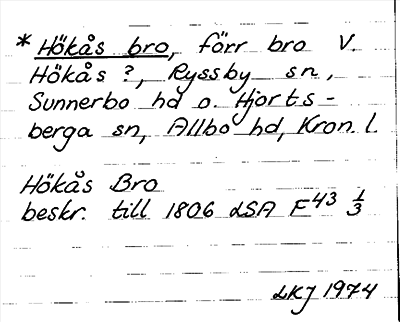 * Hökås bro, förr bro V.
Hökås ?, Ryssby sn,
Sunnerbo hd o. Hjorts-
berga sn, Allbo hd, Kron. l.
Hökås Bro
beskr. till 1806 LSA F43 1/3
LKJ 1974